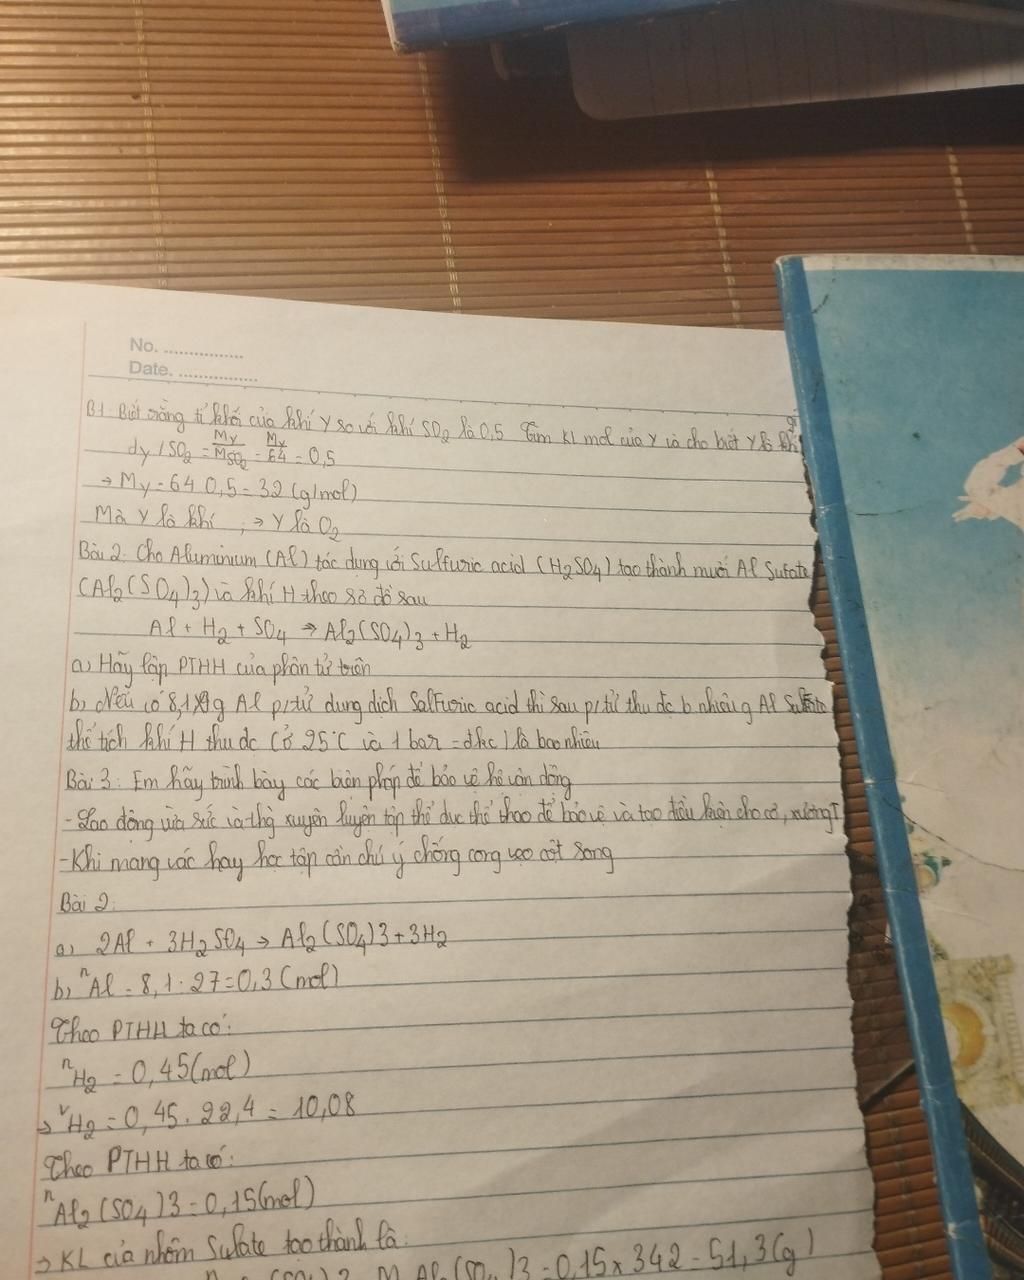 No. ...............
Date. ...............
B1: Biết rằng tỉ khối của khí Y so với khí SO2 là 0,5 Tìm KL mol của Y và cho biết Y là khí gì
dy/SO2 = My/MSO2 = My/64 = 0,5
→ My = 64 0,5 = 32 (g/mol)
Mà Y là khí ; → Y là O2
Bài 2: Cho Aluminium (Al) tác dụng với Sulfuric acid (H2SO4) tạo thành muối Al Sufate
(Al2(SO4)3) và khí H theo sơ đồ sau
Al + H2 + SO4 → Al2(SO4)3 + H2
a) Hãy lập PTHH của phân tử trên
b) Nếu có 8,1 g Al p/tử dung dịch Salfuric acid thì sau p/tử thu đc b nhiêu g Al
thể tích khí H thu đc (ở 25°C và 1 bar = đkc) là bao nhiêu
Bài 3: Em hãy trình bày các biện pháp để bảo vệ hệ vận động
- Lao động vừa sức và thg xuyên luyện tập thể dục thể thao để bảo vệ và tạo điều kiện cho cơ, xương
- Khi mang vác hay học tập cần chú ý chống cong vẹo cột song
Bài 2:
a) 2Al + 3H2SO4 → Al2(SO4)3 + 3H2
b) nAl = 8,1 : 27 = 0,3 (mol)
Theo PTHH ta có:
nH2 = 0,45 (mol)
→ vH2 = 0,45 . 22,4 = 10,08
Theo PTHH ta có:
nAl2(SO4)3 = 0,15 (mol)
→ KL của nhôm Sulfate tạo thành là:
M Al2(SO4)3 = 0,15 x 342 = 51,3 (g)